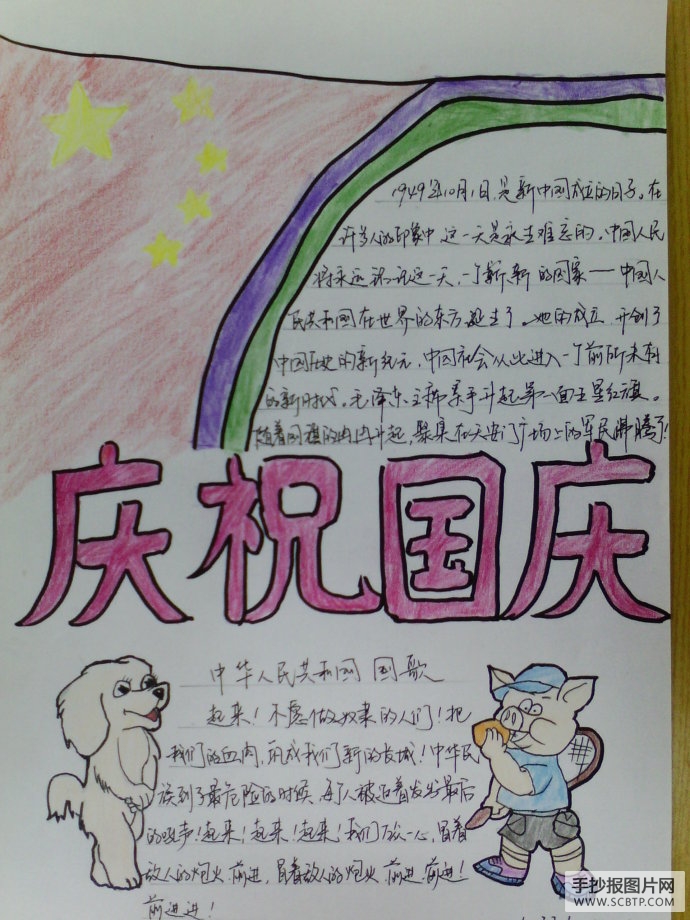 1949年10月1日,是新中国成立的日子。在
许多人的印象中这一天是永生难忘的。中国人民
将永远沉记这一天,一个崭新的国家——中国人
民共和国在世界的东方诞生了。她的成立,开创了
中国历史的新纪元,中国社会从此进入一个前所未有
的新时代。毛泽东主席亲手升起第一面五星红旗。
随着国旗的冉冉升起,聚集在天安门广场上的军民沸腾了!
庆祝国庆
中华人民共和国 国歌
起来!不愿做奴隶的人们!把
我们的血肉,筑成我们新的长城!中华民
族到了最危险的时候,每个人被迫着发出最后
的吼声!起来!起来!起来!我们万众一心,冒着
敌人的炮火前进,冒着敌人的炮火前进,前进!
前进进!
手抄报图片网
WWW.SCBTP.COM